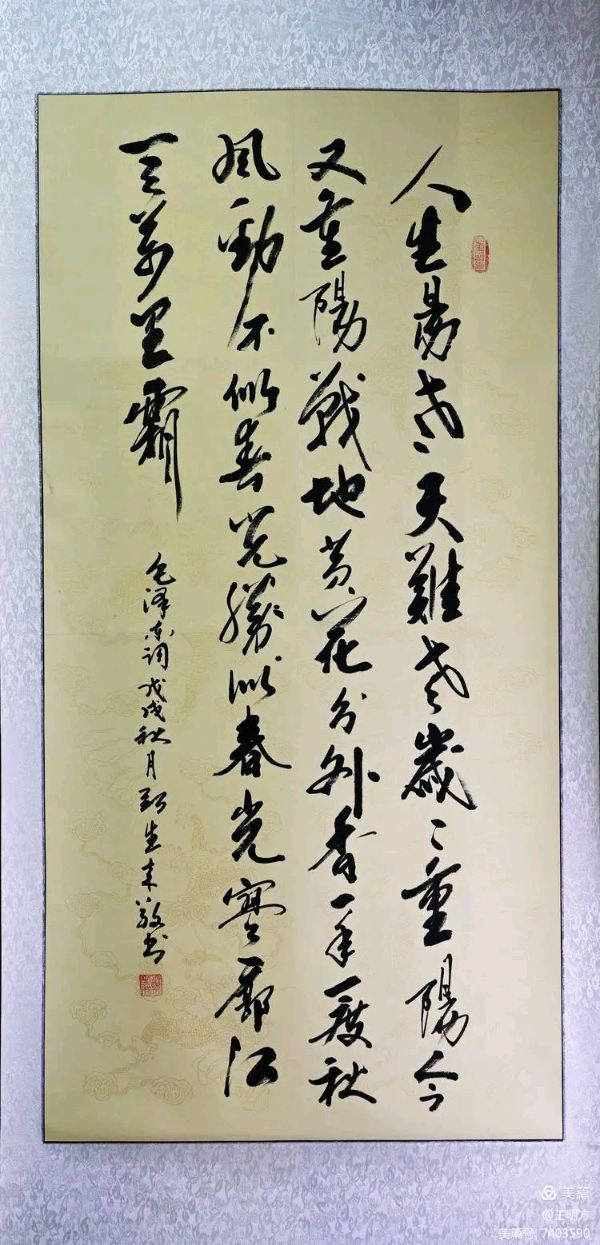 人生易老天難老歲々重陽今
又重陽戰地黃花分外香一年一度秋
風勁不似春光勝似春光寥廓江
天萬里霜
毛泽东词戊戌秋月生来敬书
美篇
@王明方
美篇号: 7403590